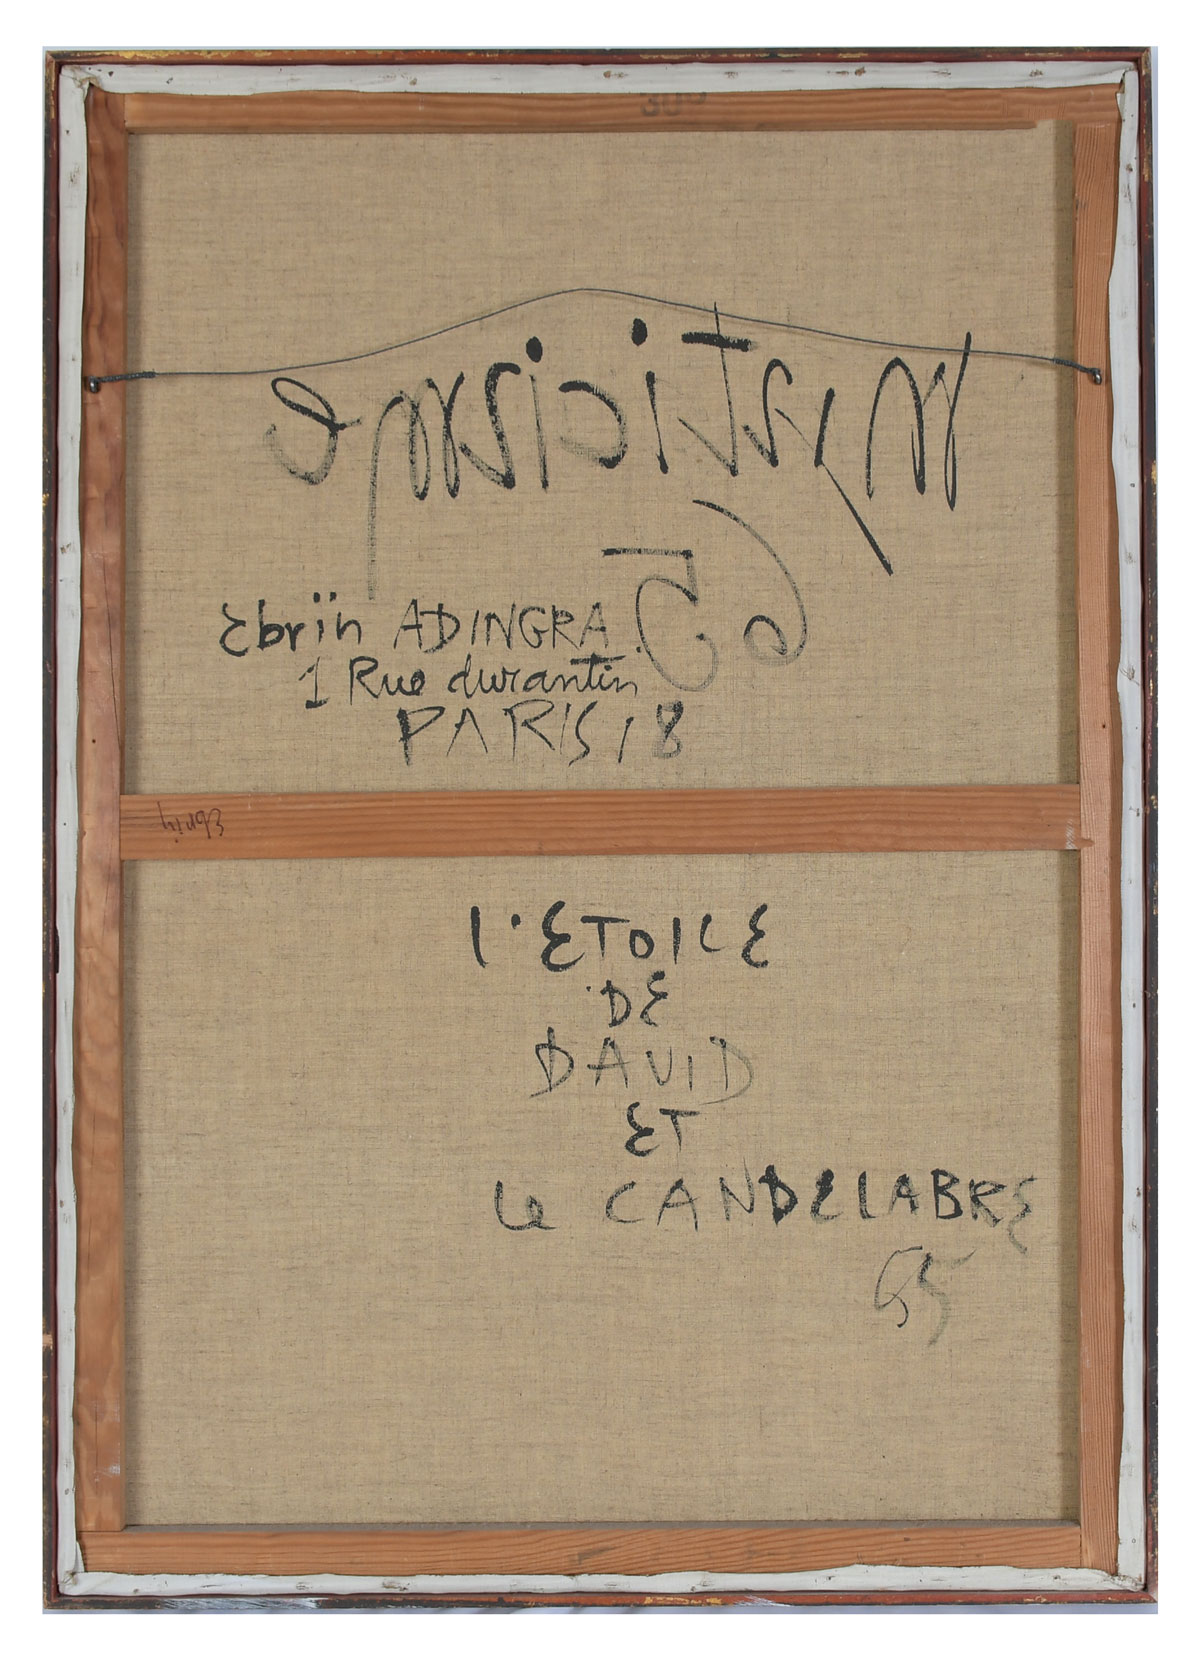 65
Ebrïn ADINGRA.
1 Rue durantin
PARIS 18
Ebrin
l'ETOILE
DE
DAVID
ET
le CANDELABRE
65